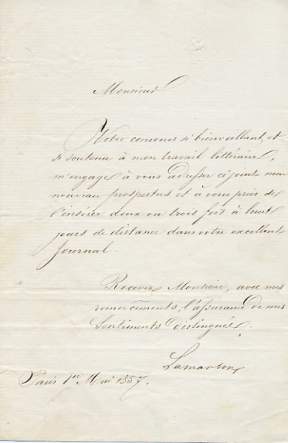 Monsieur
Votre concours si bienveillant, et
si soutenu à mon travail littéraire,
m'engage à vous adresser ci joint mon
nouveau prospectus et à vous prier de
l'insérer deux ou trois fois à huit
jours de distance dans votre excellent
Journal.
Recevez Monsieur, avec mes
remerciements, l'assurance de mes
sentiments distingués.
Lamartine
Paris 1er Mai 1857.